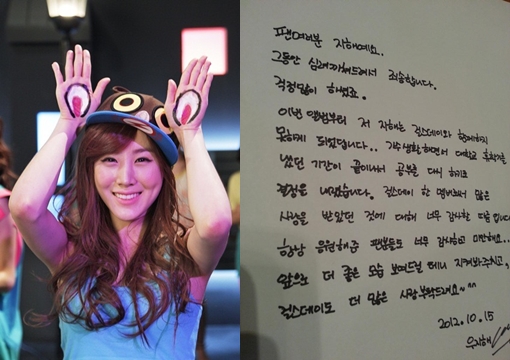 팬여러분 지해예요..
그동안 심려끼쳐드려서 죄송합니다.
걱정많이 하셨죠.
이번 앨범부터 저 지해는 걸스데이와 함께하지
못하게 되었답니다.. 가수생활하면서 대학교 휴학계를
냈던 기간이 끝이나서 공부를 다시 하기로
결정을 내렸습니다. 걸스데이 한 멤버로서 많은
사랑을 받았던 것에 대해 너무 감사할 따름입니다
항상 응원해준 팬분들도 너무 감사하고 미안해요..
앞으로 더 좋은 모습 보여드릴 테니 지켜봐주시고,
걸스데이도 더 많은 사랑부탁드려요~ ^^
2012.10.15
우지해